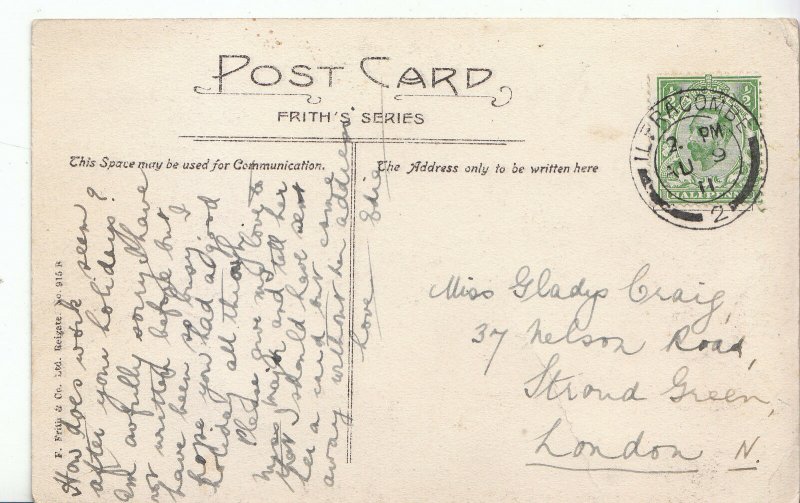 POST CARD
FRITH'S SERIES
This Space may be used for Communication.
The Address only to be written here
How does work seem
after your holidays?
Am awfully sorry I have
not written before but I
have been so busy.
hope you had a good
holiday all through.
Please give my love to
Miss and tell her
that I should have sent
her a card but came
away without her address
Love
Elsie
Miss Gladys Craig,
37 Nelson Road,
Stroud Green,
London N.
ILFRACOMBE
2. PM
JU 9
11
2
½
½
HALFPENNY
F. Frith & Co. Ltd. Reigate. No. 915 B